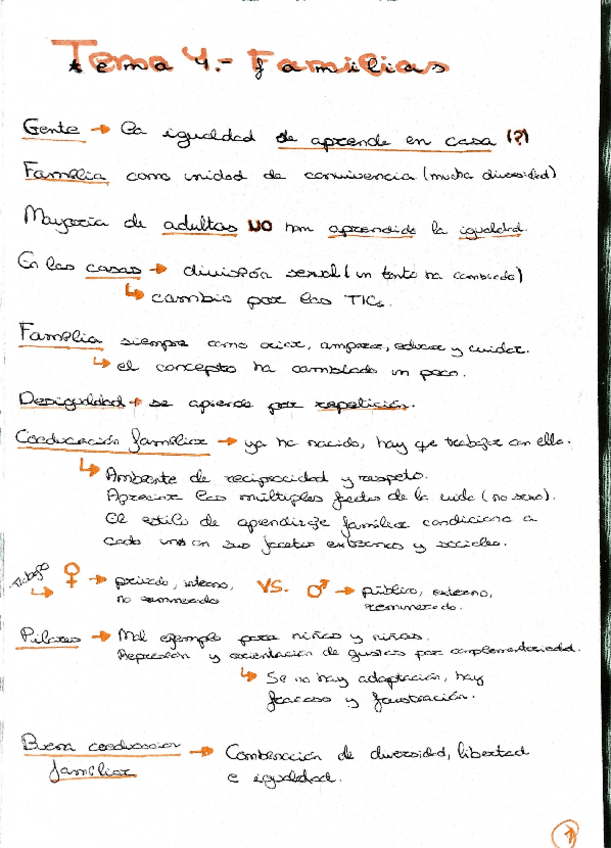 Tema 4.- Familias
Gente → La igualdad se aprende en casa (?)
Familia como unidad de convivencia (mucha diversidad)
Mayoría de adultas NO han aprendido la igualdad.
En las casas → división sexual (un tanto ha cambiado)
↳ cambio por las TICs.
Familia siempre como criar, amparar, educar y cuidar.
↳ el concepto ha cambiado un poco.
Desigualdad → se aprende por repetición.
Coeducación familiar → ya ha nacido, hay que trabajar con ella.
↳ Ambiente de reciprocidad y respeto.
Apreciar las múltiples facetas de la vida (no sexo).
El estilo de aprendizaje familiar condiciona a
cada uno en sus facetas externas y sociales.
Trabajo
↳ ♀ → privado, interno, VS. ♂ → público, externo,
no remunerado remunerado.
Pilares → Mal ejemplo para niños y niñas.
Represión y orientación de gustos por complementariedad.
↳ Si no hay adaptación, hay
fracaso y frustración.
Buena coeducación → Combinación de diversidad, libertad
familiar e igualdad.